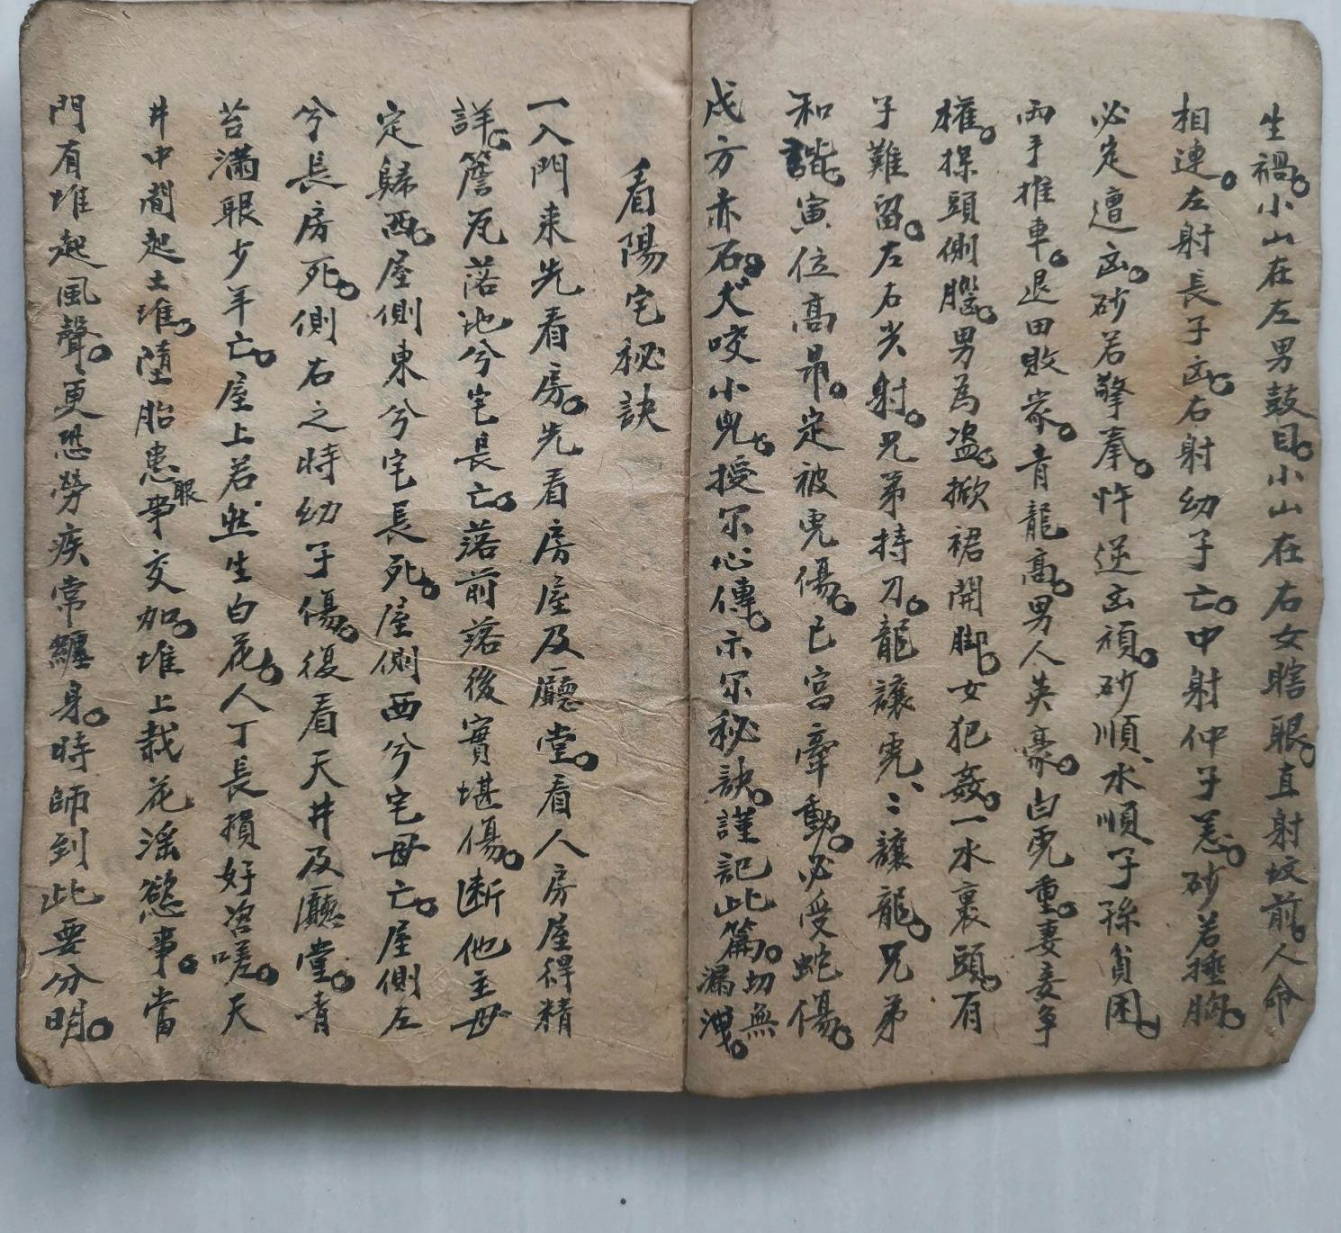 生禍。小山在左男鼓目。小山在右女瞎眼。直射坟前。人命
相連。左射長子凶。右射幼子亡。中射仲子恙。砂若捶胸。
必定遭凶。砂若擎拳。忤逆凶頑。砂順、水順子孫貧困。
両手推車。退田敗家。青龍高。男人英豪。白虎重。妻妾争
權。探頭側腦。男為盗。掀裙開脚。女犯姦。一水裹頭。有
子難留。左右尖射。兄弟持刀。龍讓虎、〻讓龍。兄弟
和諧。寅位高昂。定被虎傷。巳宮牽動。必受蛇傷。
戌方赤石。犬咬小兒。授尔心傳。示尔秘訣。謹記此篇。切無漏洩。
看陽宅秘訣
一入門来先看房。先看房屋及廳堂。看人房屋得精
詳。簷瓦落地兮宅長亡。落前落後實堪傷。断他主母
定歸西。屋側東兮宅長死。屋側西兮宅母亡。屋側左
兮長房死。側右之時幼子傷。復看天井及廳堂。青
苔滿眼少年亡。屋上若然生白花。人丁長損好咨嗟。天
井中間起土堆。墮胎患眼事交加。堆上栽花淫慾事。當
門有堆起風聲。更恐勞疾常纏身。時師到此要分明。